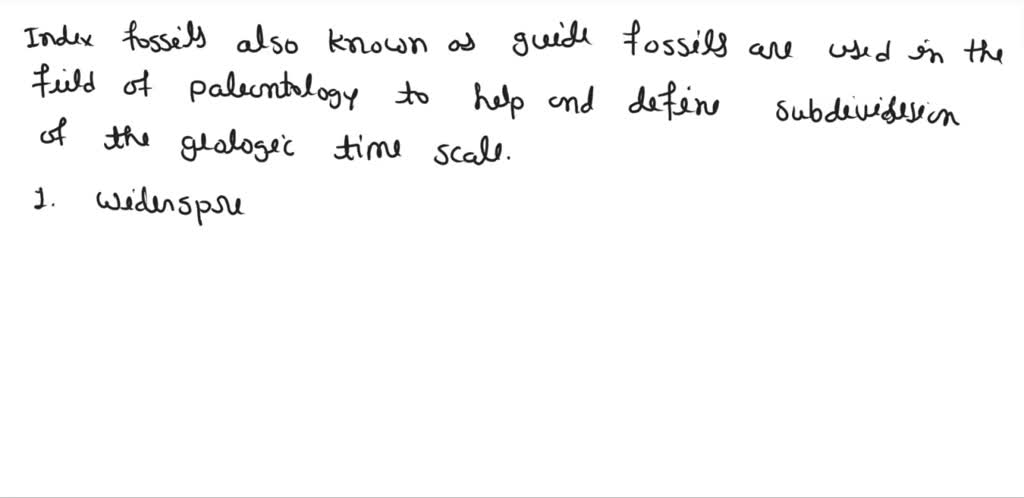 Index fossils also known as guide fossils are used in the
field of paleontology to help and define subdevidesion
of the geologic time scale.
1. widenspre